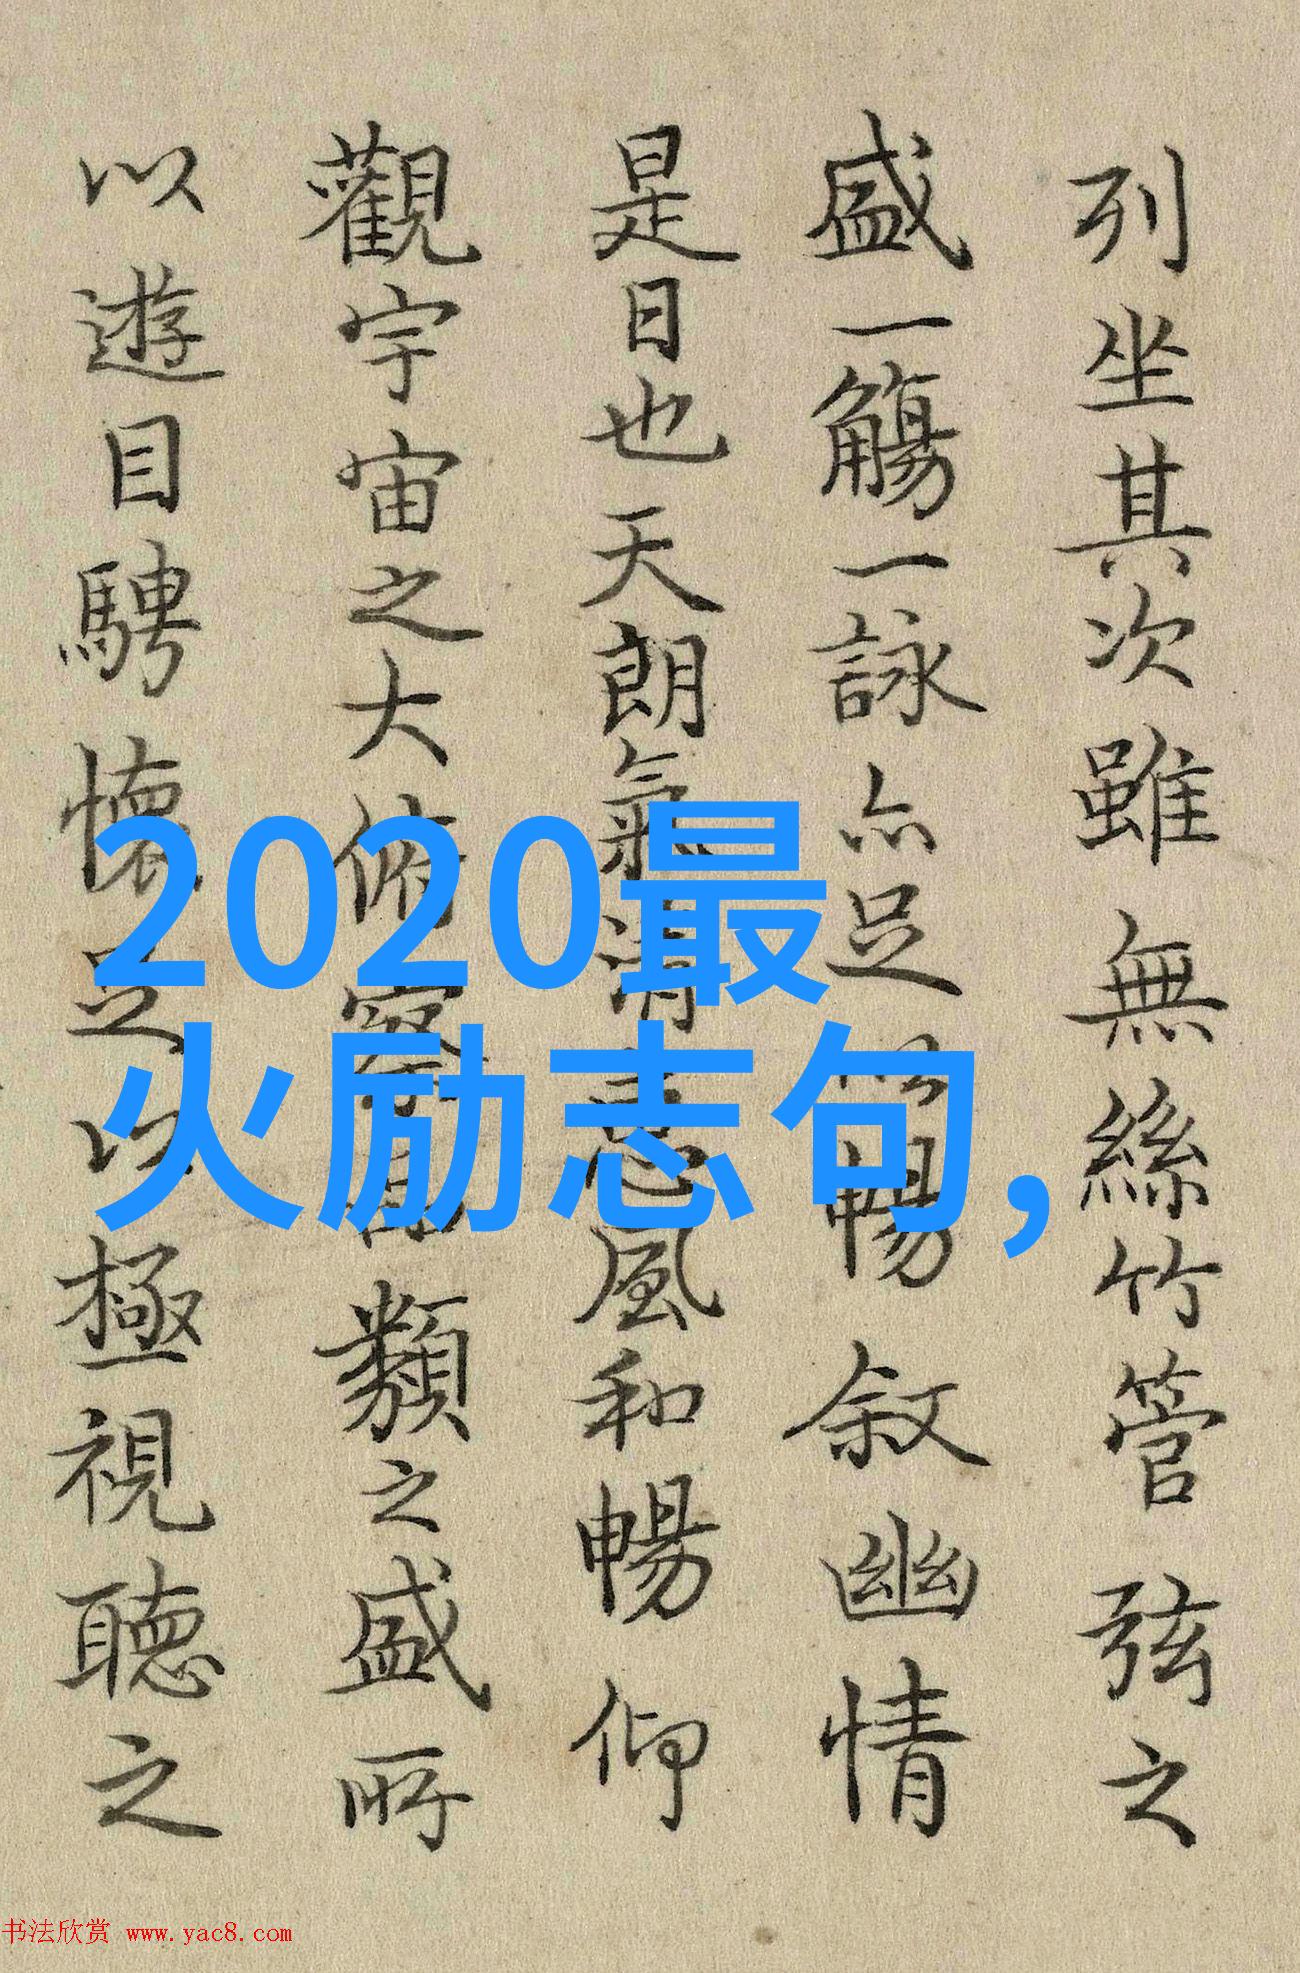 列坐其次雖無絲竹管弦之
盛一觴一詠亦足以暢叙幽情
是日也天朗氣清惠風和暢仰
觀宇宙之大俯察品類之盛所
以遊目騁懷足以極視聽之
2020最
火励志句,
书法欣赏 www.yac8.com